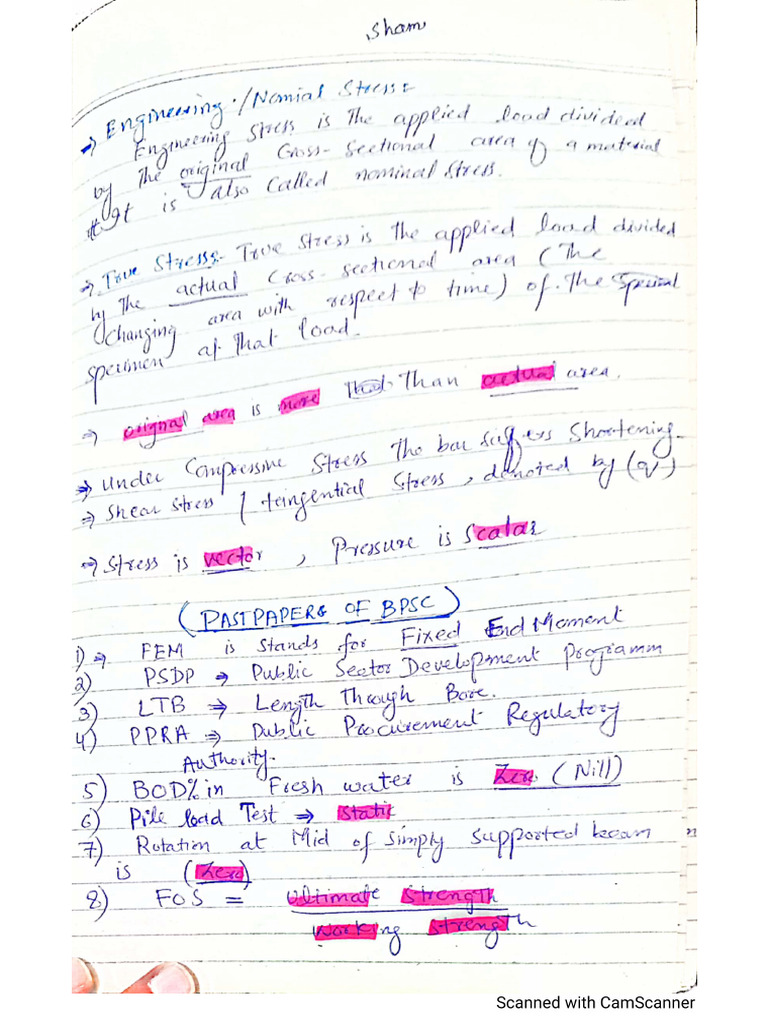 Sham
→ Engineering./Nomial Stress:
Engineering Stress is The applied load divided
by The original Cross-Sectional area of a material
It is also Called nominal Stress.
→ True Stress:- True Stress is The applied load divided
by The actual Cross-sectional area (The
changing area with respect to time) of The
specimen at That load.
⇒ original area is more Than actual area.
→ Under Compressive Stress The bar suffers Shortening.
⇒ Shear Stress / tengential Stress, denoted by (q)
⇒ Stress is vector, Pressure is Scalar
(PASTPAPERS OF BPSC)
1)→ FEM is Stands for Fixed End Moment
2) PSDP → Public Sector Development Programm
3) LTB ⇒ Length Through Bore.
4) PPRA ⇒ Public Procurement Regulatory
Authority.
5) BOD% in Fresh water is Zero (Nill)
6) Pile load Test ⇒ Static
7) Rotation at Mid of simply supported beam
is (Zero)
8) FOS = Ultimate Strength
Working Strength
Scanned with CamScanner